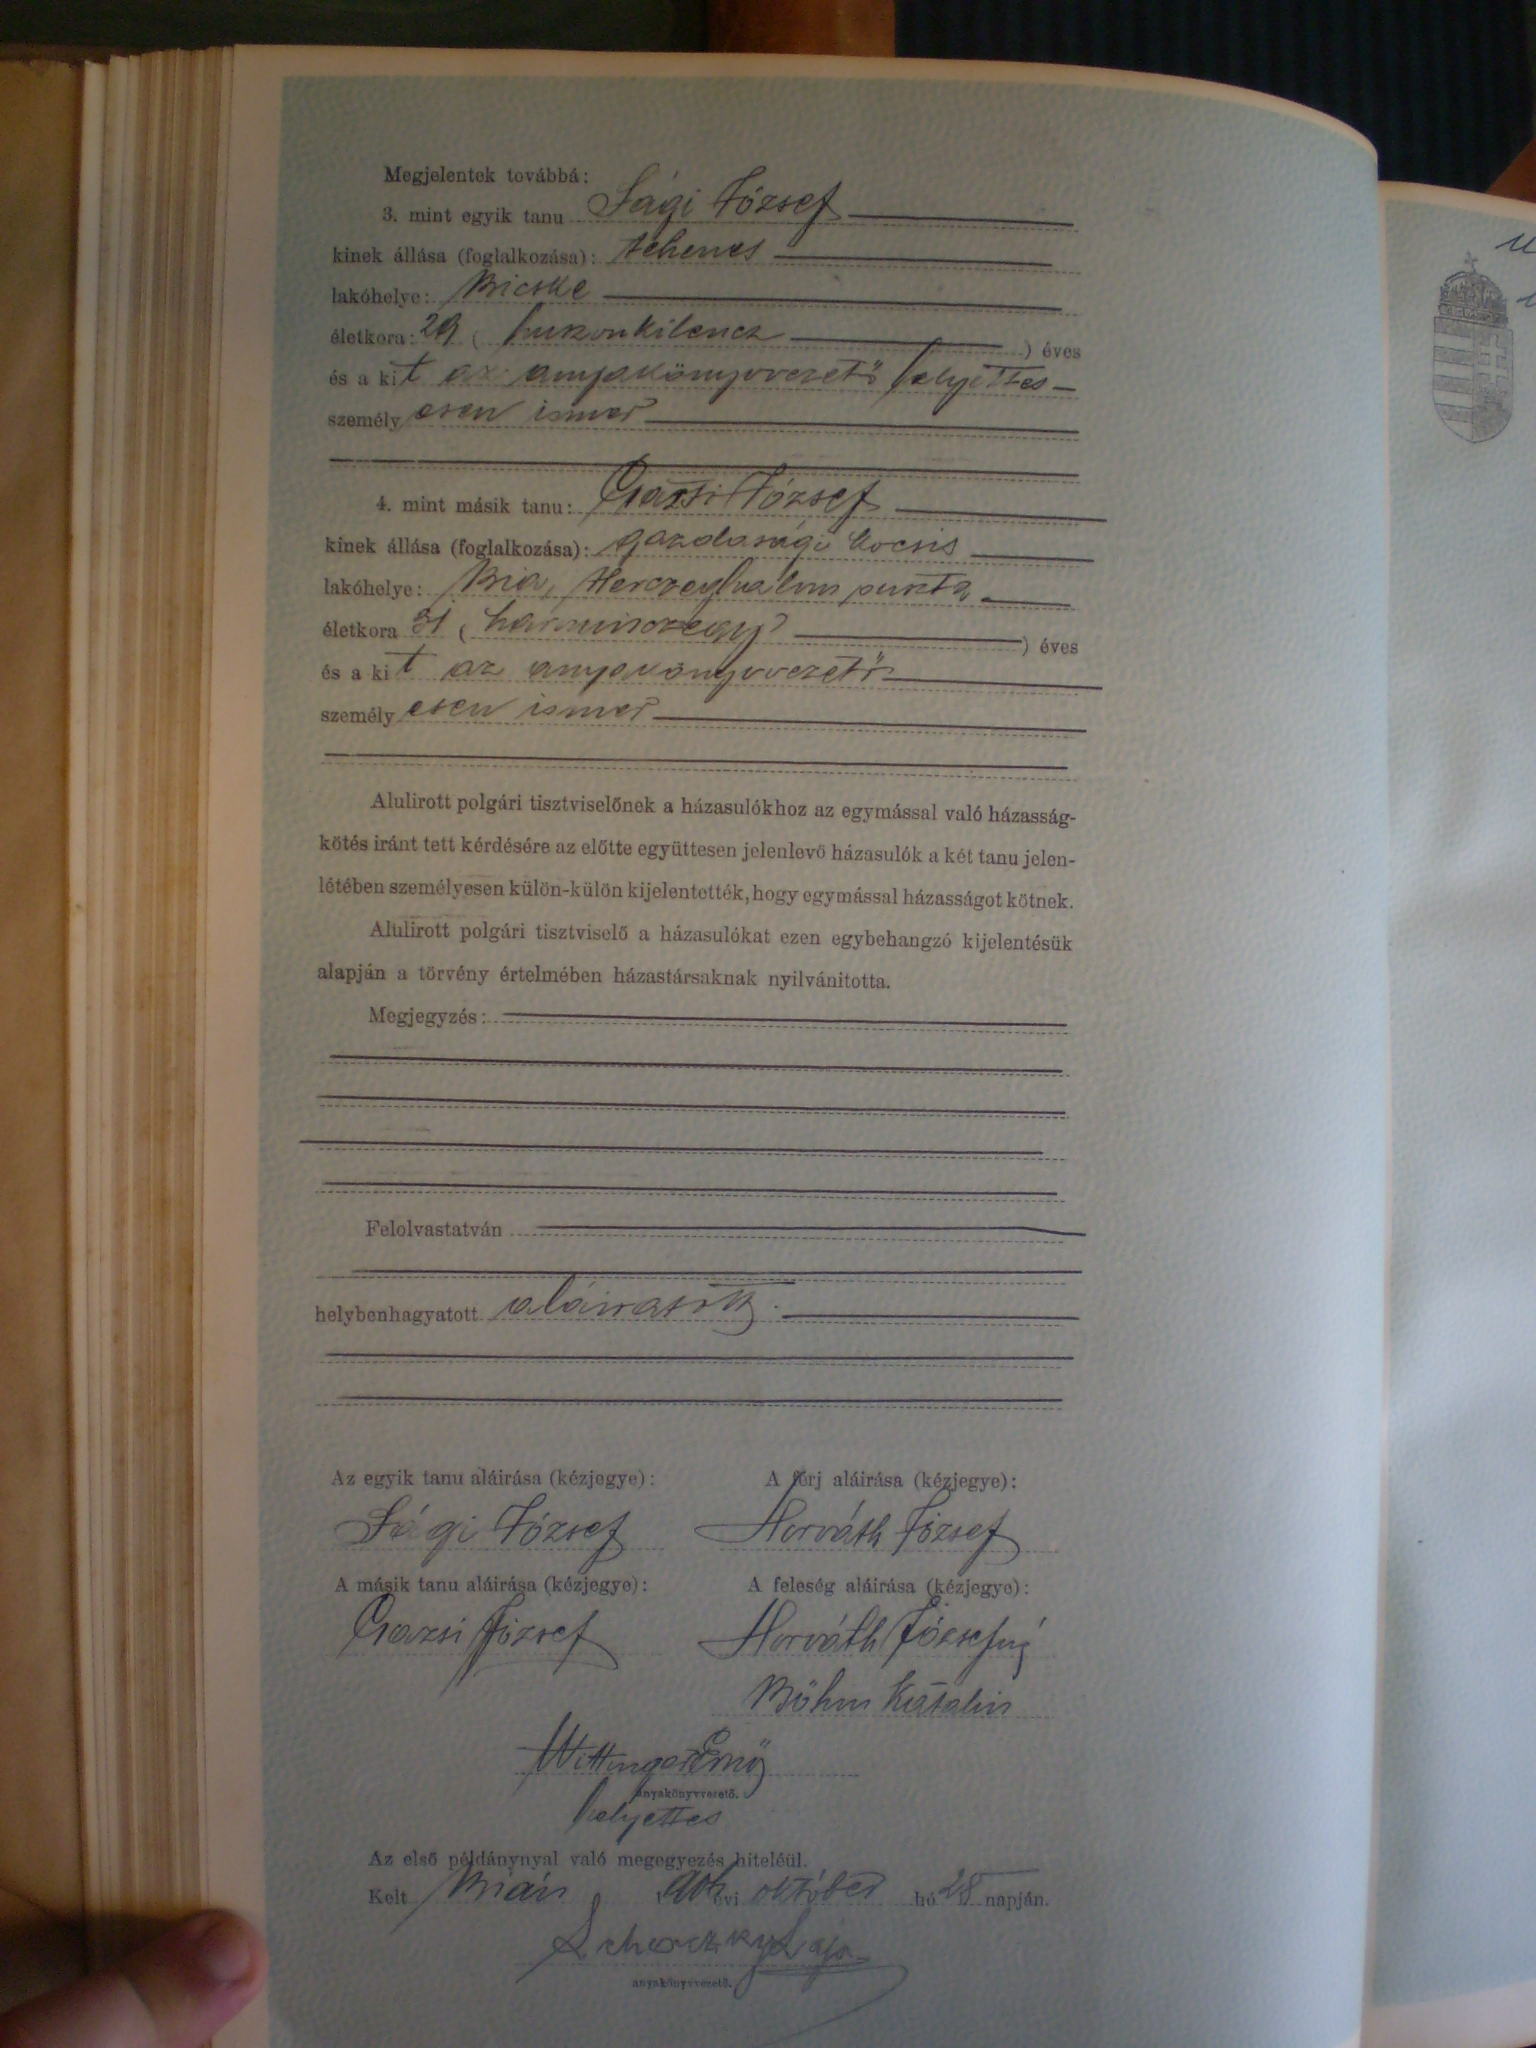 Megjelentek továbbá:
3. mint egyik tanu Sági József
kinek állása (foglalkozása): tehenes
lakóhelye: Bicske
életkora: 29 ( huszonkilencz ) éves
és a kit az anyakönyvvezető helyettes
személyesen ismer
4. mint másik tanu: József
kinek állása (foglalkozása): gazdasági kocsis
lakóhelye: Bia, Herczeghalom puszta
életkora 31 ( harminczegy ) éves
és a kit az anyakönyvvezető
személyesen ismer
Alulirott polgári tisztviselőnek a házasulókhoz az egymással való házasság-
kötés iránt tett kérdésére az előtte együttesen jelenlevő házasulók a két tanu jelen-
létében személyesen külön-külön kijelentették, hogy egymással házasságot kötnek.
Alulirott polgári tisztviselő a házasulókat ezen egybehangzó kijelentésük
alapján a törvény értelmében házastársaknak nyilvánitotta.
Megjegyzés:
Felolvastatván
helybenhagyatott aláiratott.
Az egyik tanu aláirása (kézjegye): A férj aláirása (kézjegye):
Sági József Horváth József
A másik tanu aláirása (kézjegye): A feleség aláirása (kézjegye):
József Horváth Józsefné
Böhm Katalin
Wittinger Ernő
anyakönyvvezető.
helyettes
Az első példánynyal való megegyezés hiteléül.
Kelt Bián évi október hó 28 napján.
Lajos
anyakönyvvezető.